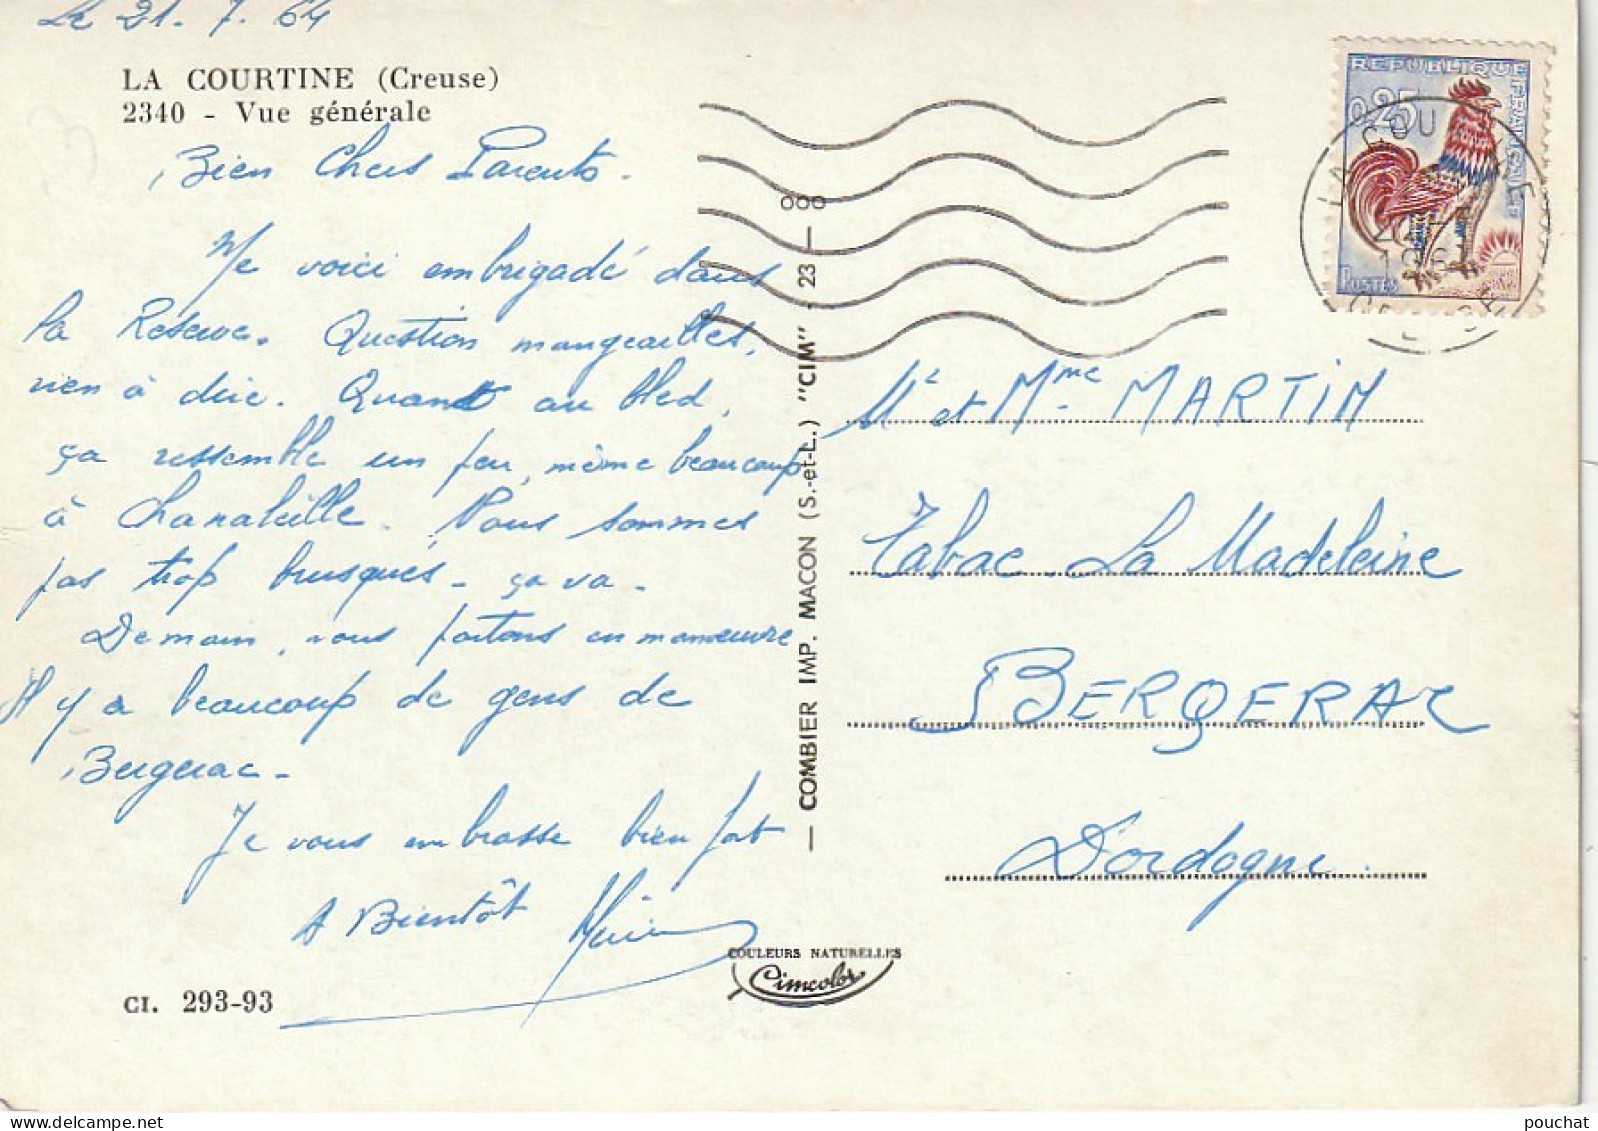 Le 21. 7. 64
LA COURTINE (Creuse)
2340 - Vue générale
Bien Chers Parents.
Me voici embrigadé dans
la Réserve. Question mangeailles,
rien à dire. Quant au bled,
ça ressemble un peu, même beaucoup
à Chanaleille. Nous sommes
pas trop brusqués - ça va.
Demain, nous partons en manœuvre
Il y a beaucoup de gens de
Bergerac.
Je vous embrasse bien fort
A Bientôt
CI. 293-93
COMBIER IMP. MACON (S.-et-L.) "CIM" - 23 - 000
COULEURS NATURELLES
Cimcolor
REPUBLIQUE FRANÇAISE
0,25
POSTES
LA COURTINE
CREUSE
Mr et Mme MARTIN
Tabac La Madeleine
BERGERAC
Dordogne.
pouchat